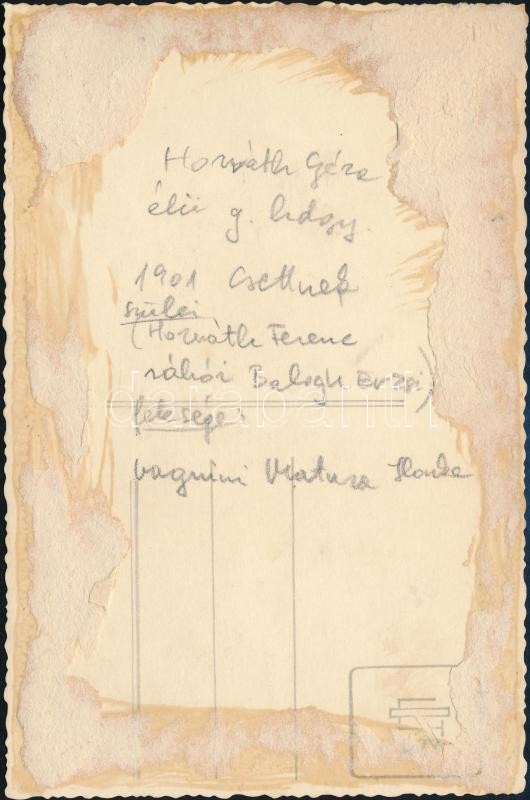 Horváth Géza
élii g. hdgy.
1901 Csettnek
szülei
(Horváth Ferenc
ráhói Balogh Erzsi)
felesége:
vagnini Ilonka
darabanth